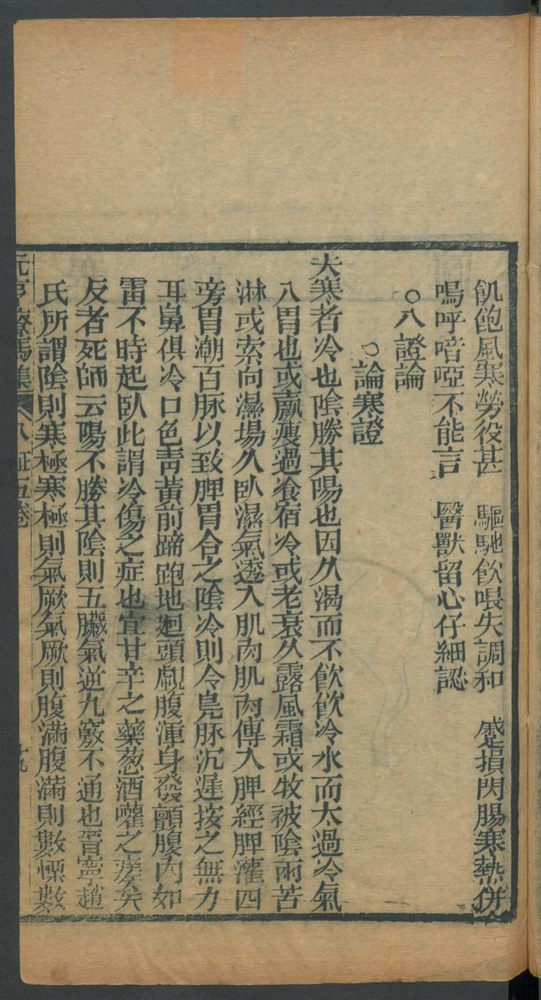 飢飽風寒勞役甚　驅馳飲喂失調和　蹙損閃腸寒熱併
嗚呼喑啞不能言　醫獸留心仔細認
○八證論
○論寒證
夫寒者冷也陰勝其陽也因久渴而不飲飲冷水而太過冷氣
入胃也或羸瘦過飡宿冷或老衰久露風霜或牧被陰雨苦
淋或索向濕塲久卧濕氣透入肌肉肌肉傳入脾經脾灌四
旁胃潮百脉以致脾胃合之陰冷則令鳬脉沉遲按之無力
耳鼻俱冷口色青黃前蹄跑地廻頭覰腹渾身發顫腹内如
雷不時起卧此謂冷傷之症也宜甘辛之藥葱酒嚾之瘥矣
反者死師云陽不勝其陰則五臟氣逆九竅不通也晋寧趙
氏所謂陰則寒極寒極則氣厥氣厥則腹滿腹滿則數慄數
元亨療馬集　八証五卷　十九